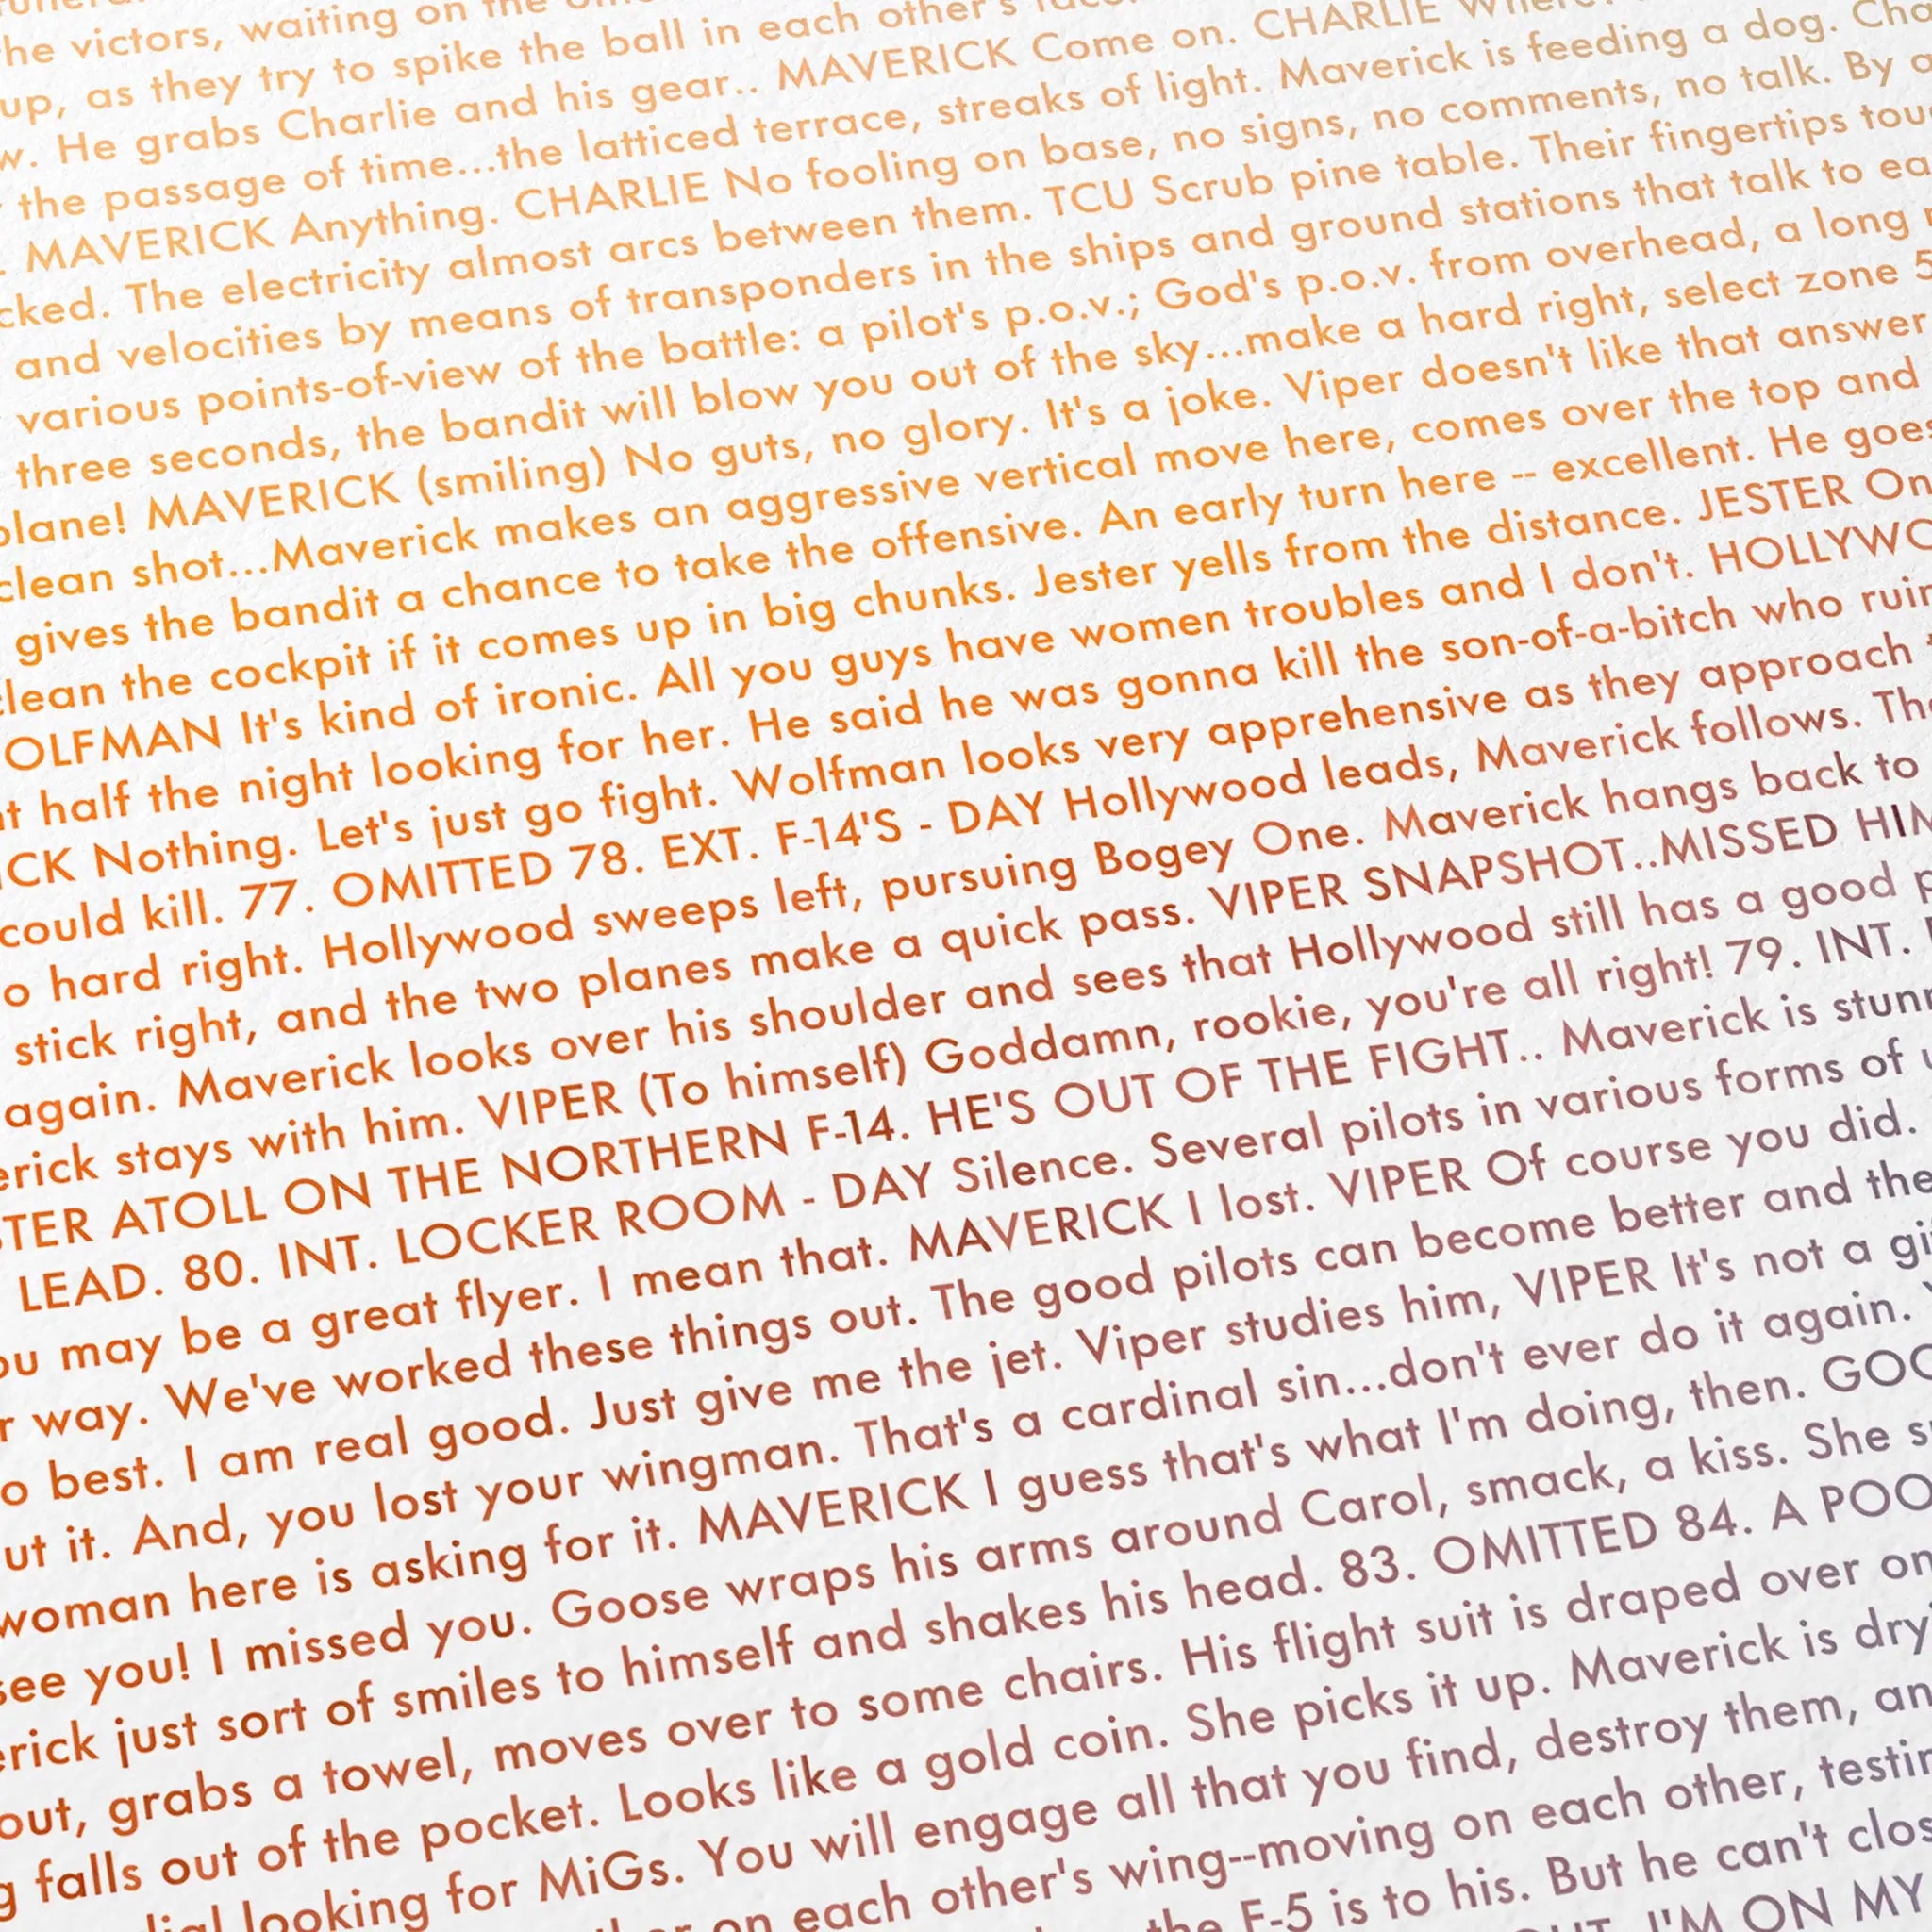 he victors, waiting on the
up, as they try to spike the ball in each other's
w. He grabs Charlie and his gear.. MAVERICK Come on. CHARLIE Where?
the passage of time...the latticed terrace, streaks of light. Maverick is feeding a dog. Cha
. MAVERICK Anything. CHARLIE No fooling on base, no signs, no comments, no talk. By a
cked. The electricity almost arcs between them. TCU Scrub pine table. Their fingertips tou
and velocities by means of transponders in the ships and ground stations that talk to ea
various points-of-view of the battle: a pilot's p.o.v.; God's p.o.v. from overhead, a long
three seconds, the bandit will blow you out of the sky...make a hard right, select zone 5
plane! MAVERICK (smiling) No guts, no glory. It's a joke. Viper doesn't like that answer
clean shot...Maverick makes an aggressive vertical move here, comes over the top and
gives the bandit a chance to take the offensive. An early turn here -- excellent. He goes
clean the cockpit if it comes up in big chunks. Jester yells from the distance. JESTER On
OLFMAN It's kind of ironic. All you guys have women troubles and I don't. HOLLYWO
nt half the night looking for her. He said he was gonna kill the son-of-a-bitch who ruin
ICK Nothing. Let's just go fight. Wolfman looks very apprehensive as they approach
could kill. 77. OMITTED 78. EXT. F-14'S - DAY Hollywood leads, Maverick follows. Th
o hard right. Hollywood sweeps left, pursuing Bogey One. Maverick hangs back to
stick right, and the two planes make a quick pass. VIPER SNAPSHOT..MISSED HIM
again. Maverick looks over his shoulder and sees that Hollywood still has a good p
erick stays with him. VIPER (To himself) Goddamn, rookie, you're all right! 79. INT.
TER ATOLL ON THE NORTHERN F-14. HE'S OUT OF THE FIGHT.. Maverick is stunn
LEAD. 80. INT. LOCKER ROOM - DAY Silence. Several pilots in various forms of u
ou may be a great flyer. I mean that. MAVERICK I lost. VIPER Of course you did.
r way. We've worked these things out. The good pilots can become better and the
o best. I am real good. Just give me the jet. Viper studies him, VIPER It's not a gi
ut it. And, you lost your wingman. That's a cardinal sin...don't ever do it again.
woman here is asking for it. MAVERICK I guess that's what I'm doing, then. GOO
see you! I missed you. Goose wraps his arms around Carol, smack, a kiss. She s
erick just sort of smiles to himself and shakes his head. 83. OMITTED 84. A POO
out, grabs a towel, moves over to some chairs. His flight suit is draped over on
g falls out of the pocket. Looks like a gold coin. She picks it up. Maverick is dryi
looking for MiGs. You will engage all that you find, destroy them, an
on each other's wing--moving on each other, testin
the F-5 is to his. But he can't clos
I'M ON MY